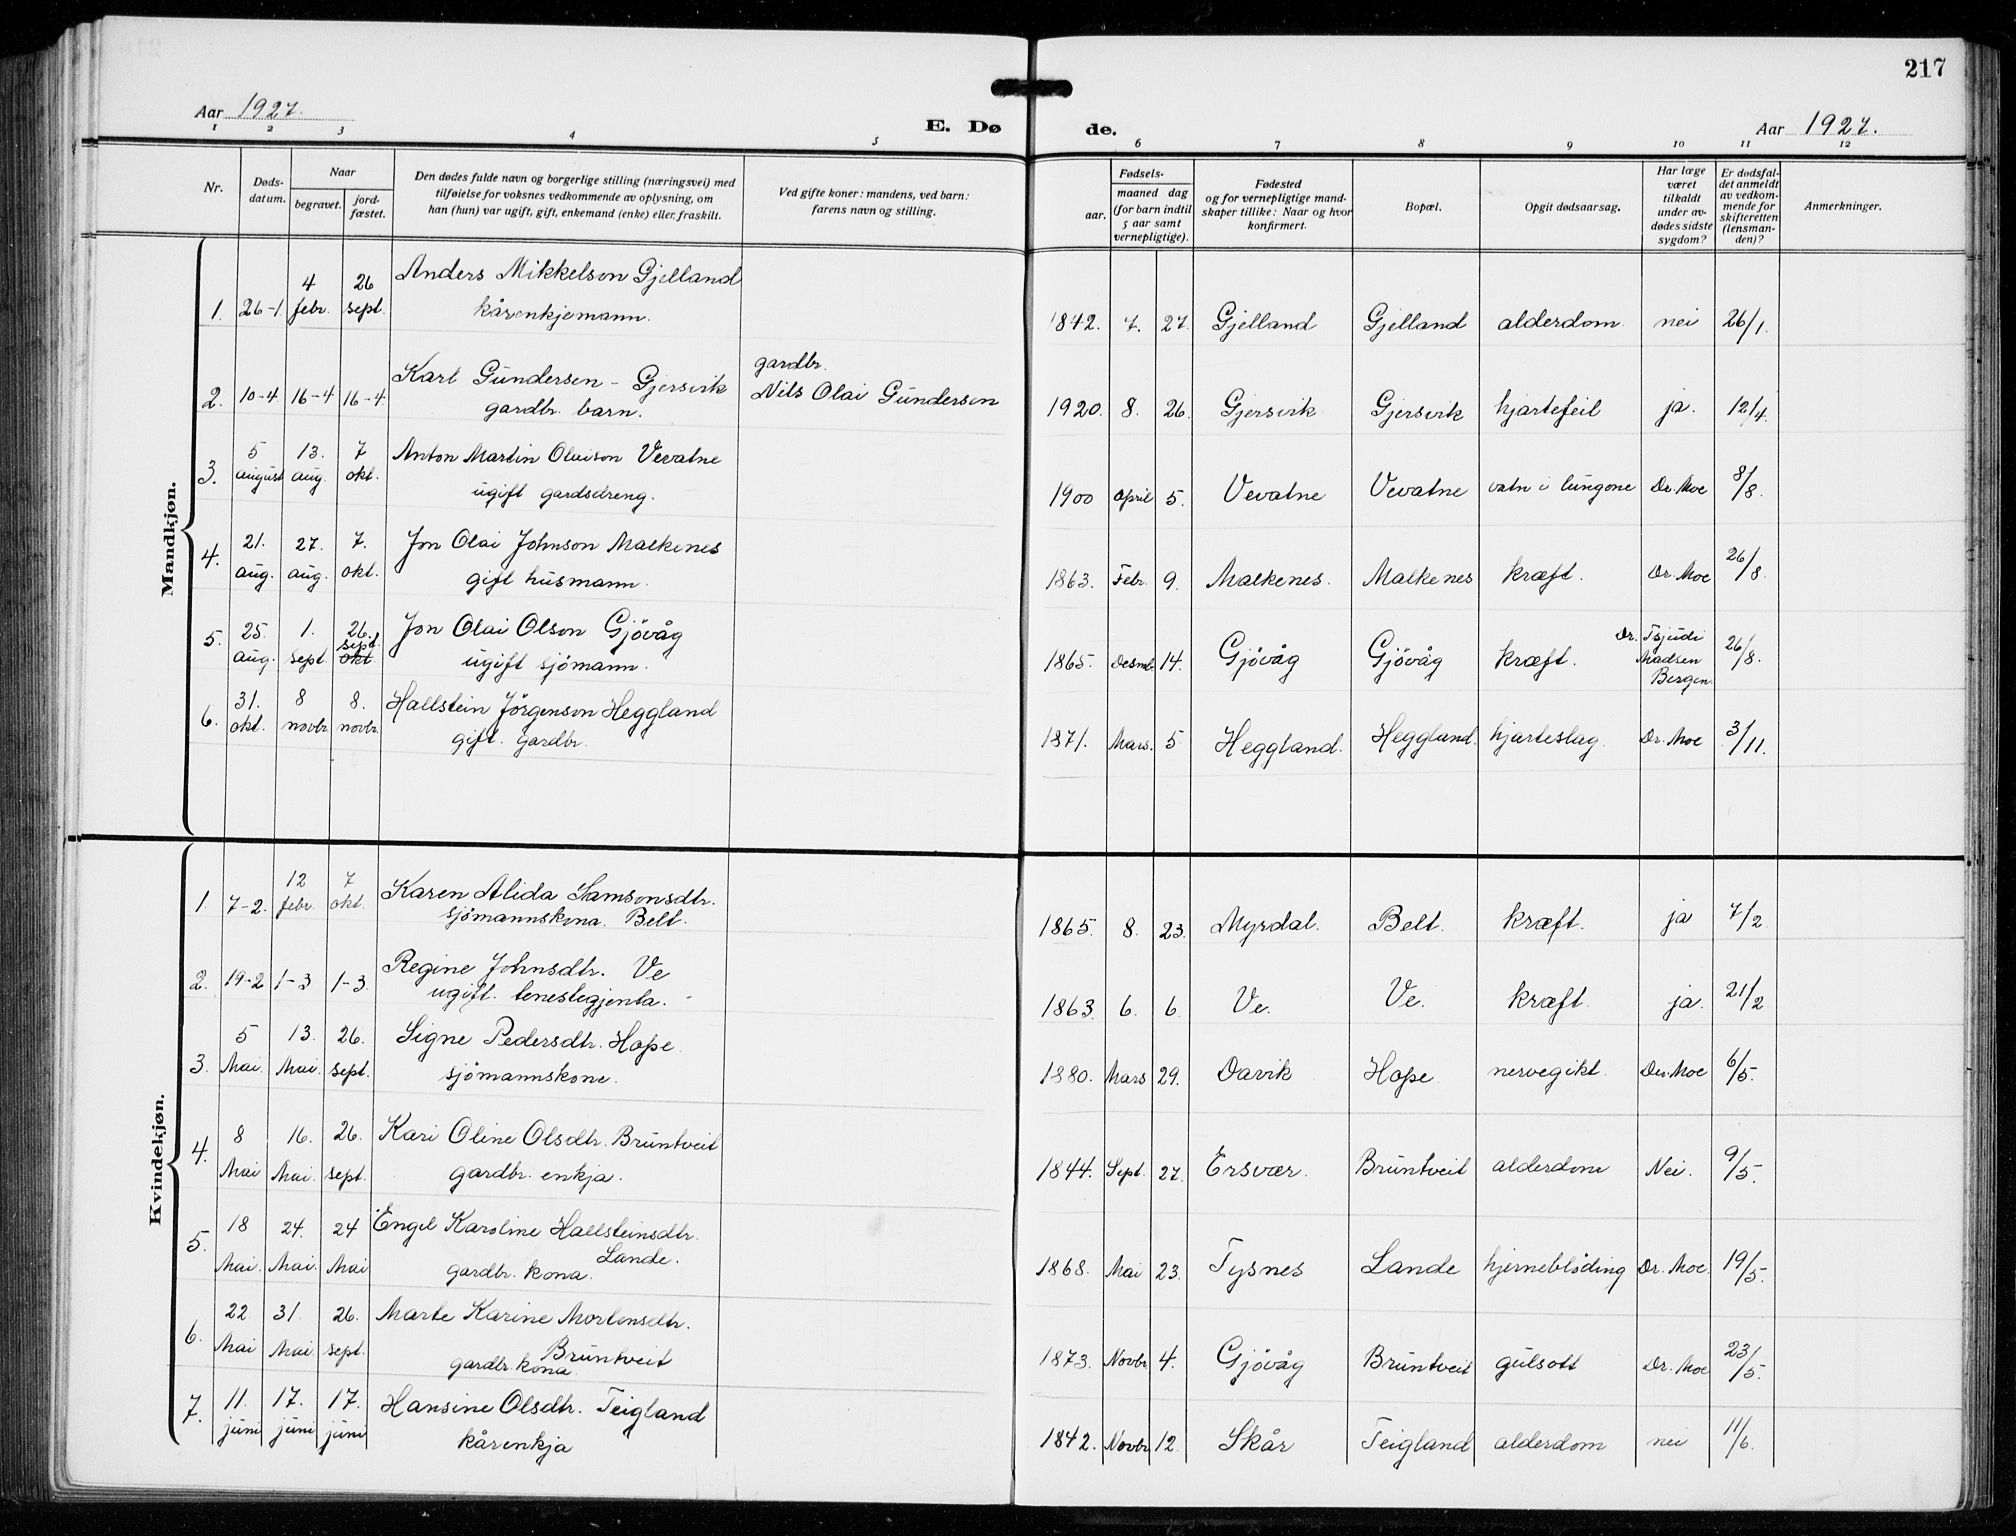 217
Aar 1927.
E. Dø de.
Aar 1927.
1 2 3 4 5 6 7 8 9 10 11 12
Nr.
Døds-
datum.
Naar
begravet.
jord-
fæstet.
Den dødes fulde navn og borgerlige stilling (næringsvei) med
tilføielse for voksnes vedkommende av oplysning, om
han (hun) var ugift, gift, enkemand (enke) eller fraskilt.
Ved gifte koner: mandens, ved barn:
farens navn og stilling.
Fødsels-
aar.
maaned dag
(for barn indtil
5 aar samt
vernepligtige).
Fødested
og for vernepligtige mand-
skaper tillike: Naar og hvor
konfirmert.
Bopæl.
Opgit dødsaarsag.
Har læge
været
tilkaldt
under av-
dødes sidste
sygdom?
Er dødsfal-
det anmeldt
av vedkom-
mende for
skifteretten
(lensman-
den)?
Anmerkninger.
Mandkjøn.
4 26 Anders Mikkelson Gjelland
1. 26-1 febr. sept. kårenkjemann. 1842. 7. 27. Gjelland Gjelland alderdom nei 26/1.
gardbr.
Karl Gundersen - Gjersvik Nils Olai Gundersen
2. 10-4 16-4 16-4 gardbr. barn. 1920. 8. 26. Gjersvik Gjersvik hjartefeil ja. 12/4.
5 13. 7 Anton Martin Olaison Vevatne
3. august aug. okt. ugift gardsdreng. 1900 April 5. Vevatne Vevatne vatn i lungone Dr. Moe 8/8.
21. 27. 7. Jon Olai Johnson Malkenes
4. aug. aug. okt. gift husmann. 1863. Febr. 9. Malkenes. Malkenes kræft. Dr. Moe 26/8.
25. 1. 26. Jon Olai Olson Gjövåg
sept.
5. aug. sept okt ugift sjömann. 1865. Desmb. 14. Gjövåg Gjövåg kræft. Dr. Tsjudi
Madsen
Bergen. 26/8.
31. 8 8. Hallstein Jörgenson Heggland
6. okt. novbr. novbr. gift. gardbr. 1871. Mars. 5 Heggland. Heggland. hjarteslag. Dr. Moe 3/11.
Kvindekjøn.
12 7 Karen Alida Samsonsdtr.
1. 7-2. febr. okt. sjömannskona. Belt. 1865. 8. 23. Myrdal. Belt. kræft. ja 7/2.
Regine Johnsdtr. Ve
2. 19-2 1-3 1-3. ugift. tenestegjenta. 1863. 6. 6. Ve. Ve. kræft. ja. 21/2
5 13. 26. Signe Pedersdtr. Hope.
3. Mai. Mai. sept. sjömannskone. 1880. Mars 29. Davik Hope nervegikt. Dr. Moe 6/5.
8 16. 26. Kari Oline Olsdtr. Bruntveit
4. Mai Mai. sept. gardbr. enkja. 1844. Sept. 27. Ersvær. Bruntveit alderdom Nei. 9/5.
18 24. 24 Engel Karoline Hallsteinsdtr.
Lande.
5. Mai. Mai. Mai gardbr. kona. 1868. Mai 23. Tysnes Lande hjerneblöding Dr. Moe. 19/5.
22 31. 26. Marte Karine Mortensdtr.
Bruntveit
6. Mai Mai. sept. gardbr. kona. 1873. Novbr 4. Gjövåg Bruntveit gulsott Dr. Moe 23/5.
11. 17. 17. Hansine Olsdtr. Teigland
7. juni juni juni kårenkja 1842. Novbr. 12. Skår Teigland alderdom nei 11/6.